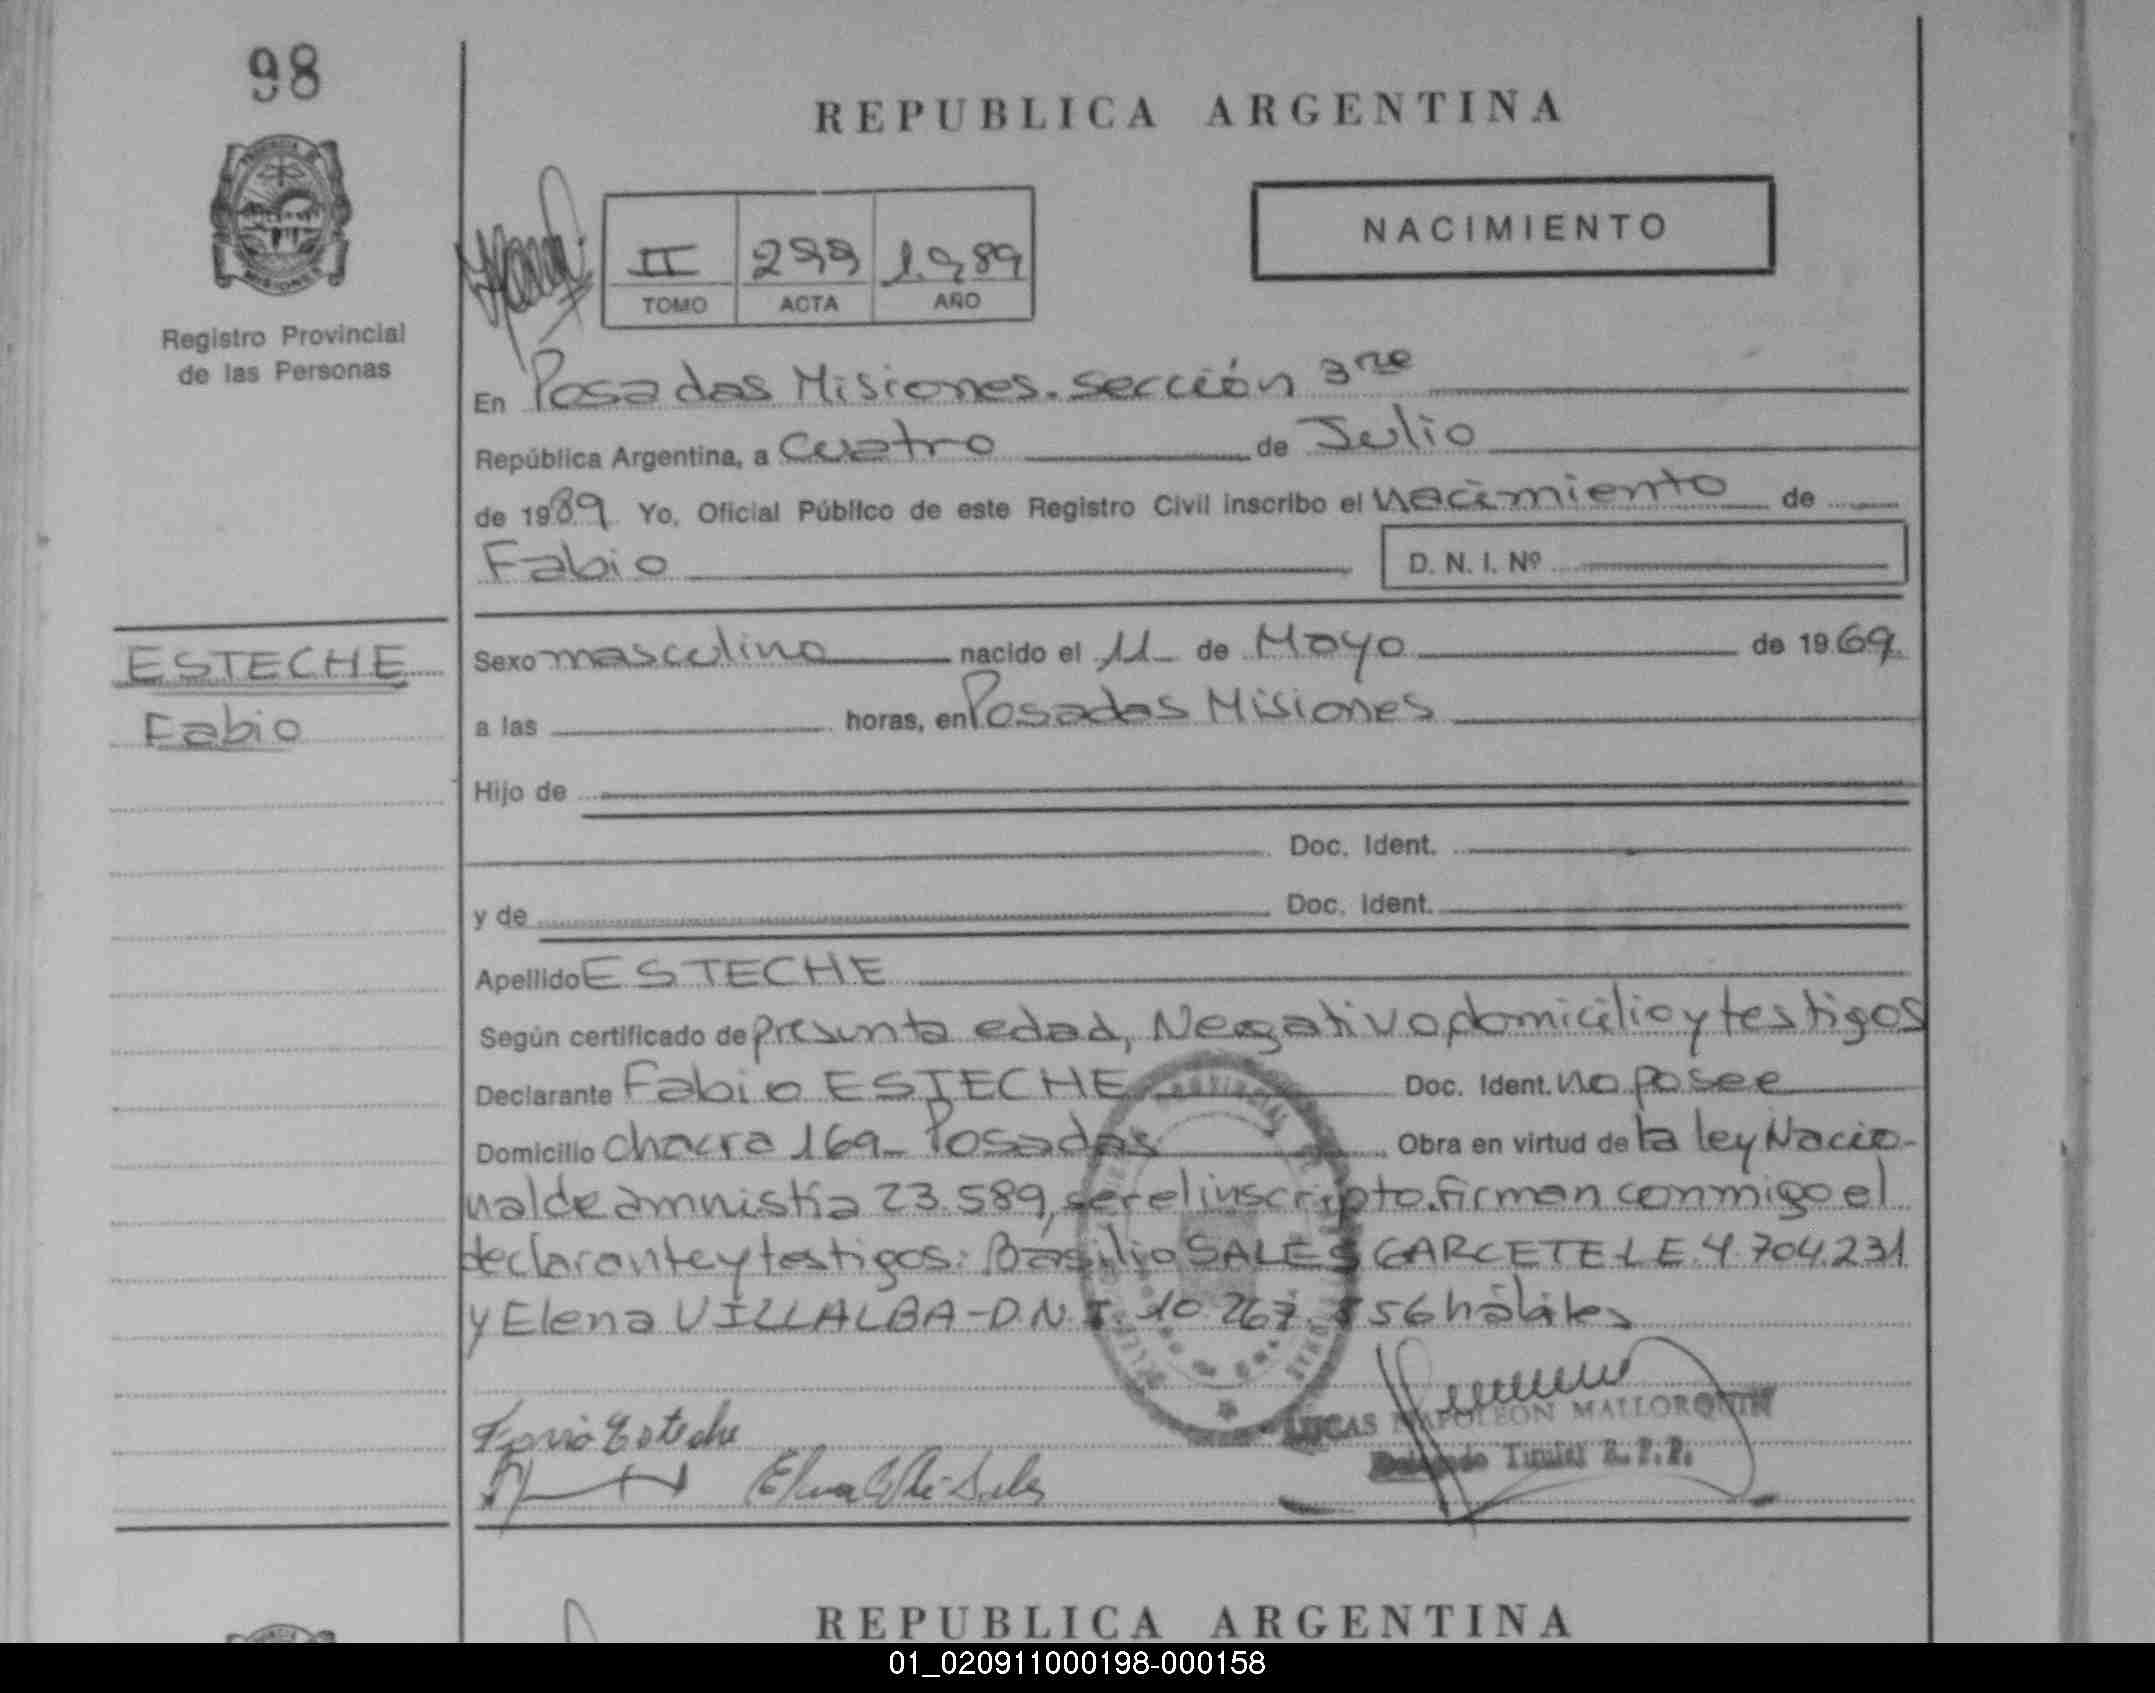 98
REPUBLICA ARGENTINA
II 299 1989
TOMO ACTA AÑO
NACIMIENTO
Registro Provincial
de las Personas
En Posadas Misiones. Sección 3ra
República Argentina, a Cuatro de Julio
de 1989 Yo, Oficial Público de este Registro Civil inscribo el nacimiento de
Fabio D. N. I. Nº
ESTECHE
Fabio
Sexo masculino nacido el 11 de Mayo de 1969.
a las horas, en Posadas Misiones
Hijo de
Doc. Ident.
y de Doc. Ident.
Apellido ESTECHE
Según certificado de presunta edad, Negativo, domicilio y testigos
Declarante Fabio ESTECHE Doc. Ident. no posee
Domicilio chacra 169 Posadas Obra en virtud de la ley Nacio-
nal de amnistía 23.589, ser el inscripto. firman conmigo el
declarante y testigos: Basilio SALES GARCETE L E. 4.704.231
y Elena VILLALBA - D.N.I. 10.267. 56 hábiles
Esteche
LUCAS NAPOLEON MALLORQUIN
Delegado Titular R. P. P.
REPUBLICA ARGENTINA
01_020911000198-000158